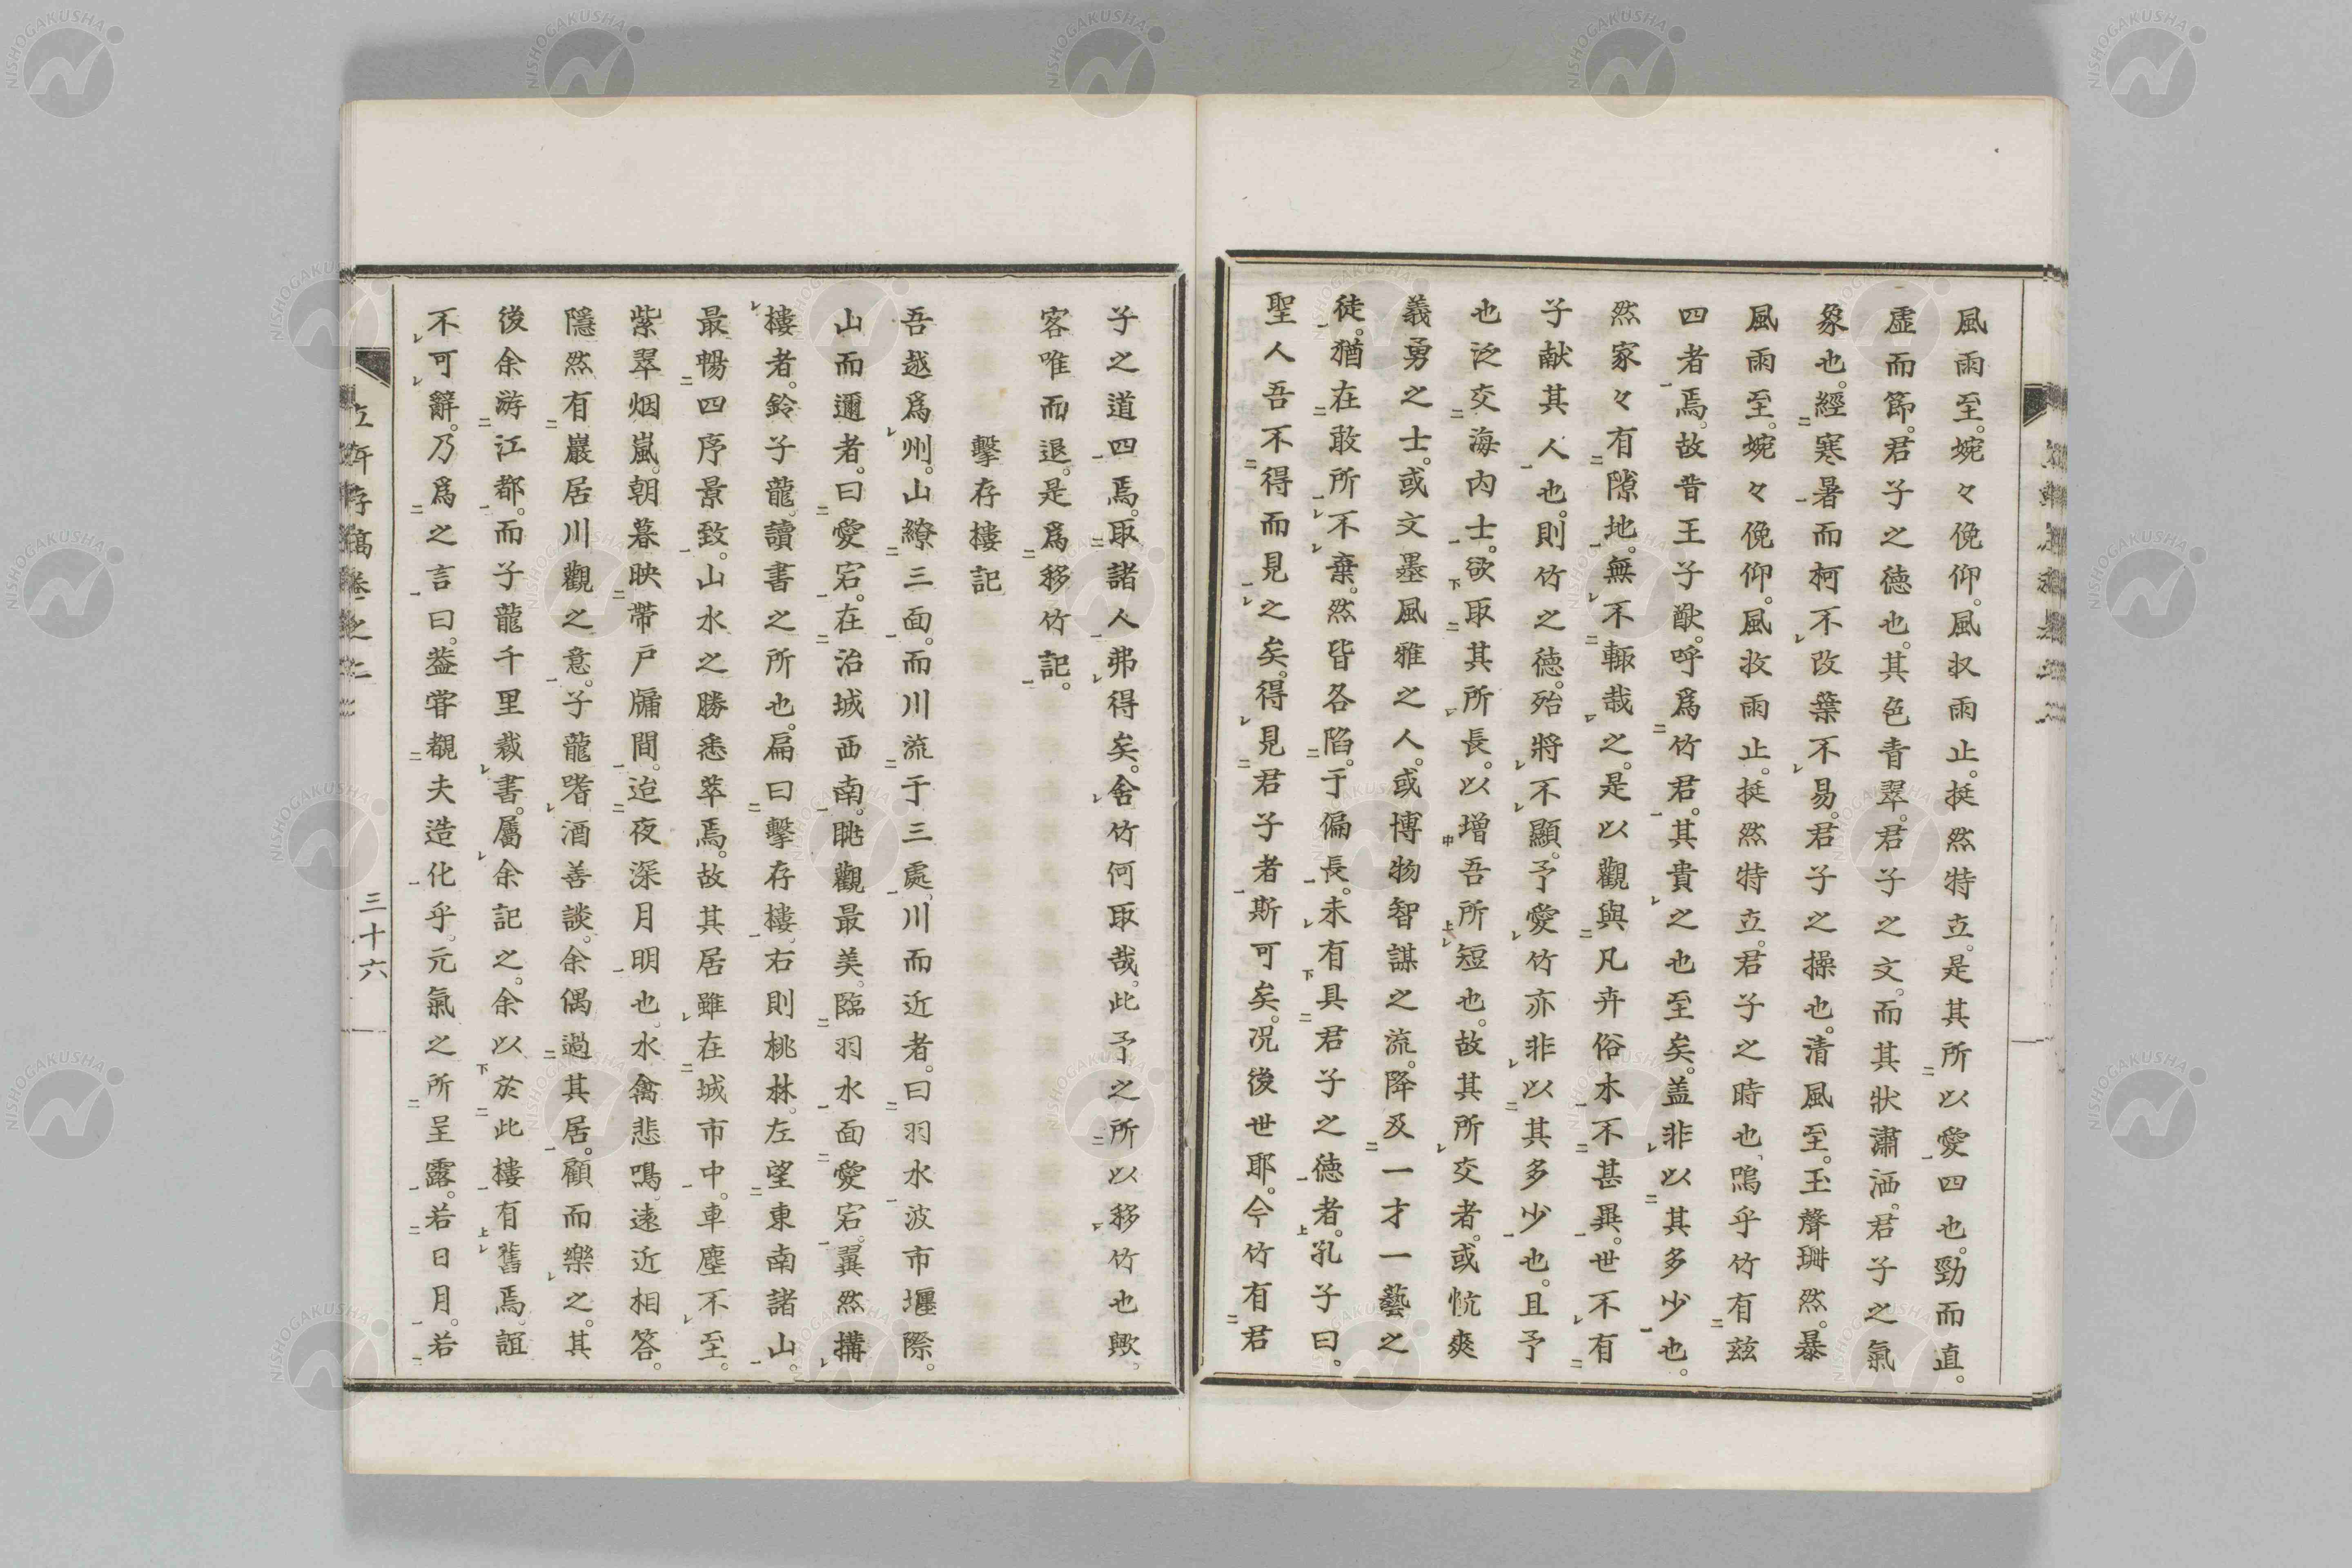 風雨至。婉々俛仰。風収雨止。挺然特立。是其所以愛四也。勁而直。
虛而節。君子之徳也。其色青翠。君子之文。而其狀瀟洒。君子之氣
象也。經寒暑而柯不改葉不易。君子之操也。清風至。玉聲琍然。暴
風雨至。婉々俛仰。風收雨止。挺然特立。君子之時也。嗚乎竹有玆
四者焉。故昔王子猷。呼爲竹君。其貴之也至矣。盖非以其多少也。
然家々有隙地。無不輙哉之。是以觀與凡卉俗木不甚異。世不有
子献其人也。則竹之徳。殆將不顯。予愛竹亦非以其多少也。且予
也泛交海内士。欲取其所長。以增吾所短也。故其所交者。或忼爽
義勇之士。或文墨風雅之人。或博物智謀之流。降及一才一藝之
徒。猶在敢所不棄。然皆各陷。于偏長。未有具君子之徳者。孔子曰。
聖人吾不得而見之矣。得見君子者斯可矣。况後世耶。今竹有君
子之道四焉。取諸人弗得矣。舍竹何取哉。此予之所以移竹也歟。
客唯而退。是爲移竹記。
擊存樓記
吾越爲州。山繚三面。而川流于三處。川而近者。曰羽水波市堰際。
山而邇者。曰愛宕。在治城西南。眺觀最美。臨羽水面愛宕。翼然搆
樓者。鈴子龍讀書之所也。扁曰擊存樓。右則桃林。左望東南諸山。
最暢四序景致。山水之勝悉萃焉。故其居雖在城市中。車塵不至。
紫翠烟嵐。朝暮映帶戸牖間。迨夜深月明也。水禽悲鳴。遠近相答。
隱然有巖居川觀之意。子龍嗜酒善談。余偶過其居。顧而樂之。其
後余游江都。而子龍千里裁書。屬余記之。余以於此樓有舊焉。誼
不可辭。乃爲之言曰。葢甞覩夫造化乎。元氣之所呈露。若日月。若
存稿卷之二
三十六